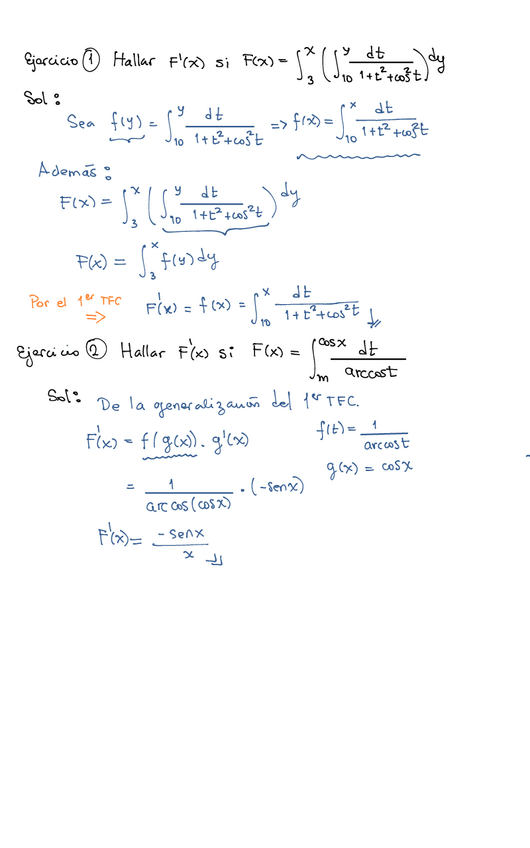 Ejercicio ① Hallar F'(x) si F(x) = ∫_3^x (∫_10^y dt/(1+t²+cos²t)) dy
Sol:
Sea f(y) = ∫_10^y dt/(1+t²+cos²t) => f(x) = ∫_10^x dt/(1+t²+cos²t)
Además:
F(x) = ∫_3^x (∫_10^y dt/(1+t²+cos²t)) dy
F(x) = ∫_3^x f(y) dy
Por el 1er TFC => F'(x) = f(x) = ∫_10^x dt/(1+t²+cos²t)
Ejercicio ② Hallar F'(x) si F(x) = ∫_m^cosx dt/arccost
Sol: De la generalización del 1er TFC.
F'(x) = f(g(x)). g'(x) f(t) = 1/arccost
g(x) = cosx
= 1/arccos(cosx) · (-senx)
F'(x) = -senx/x